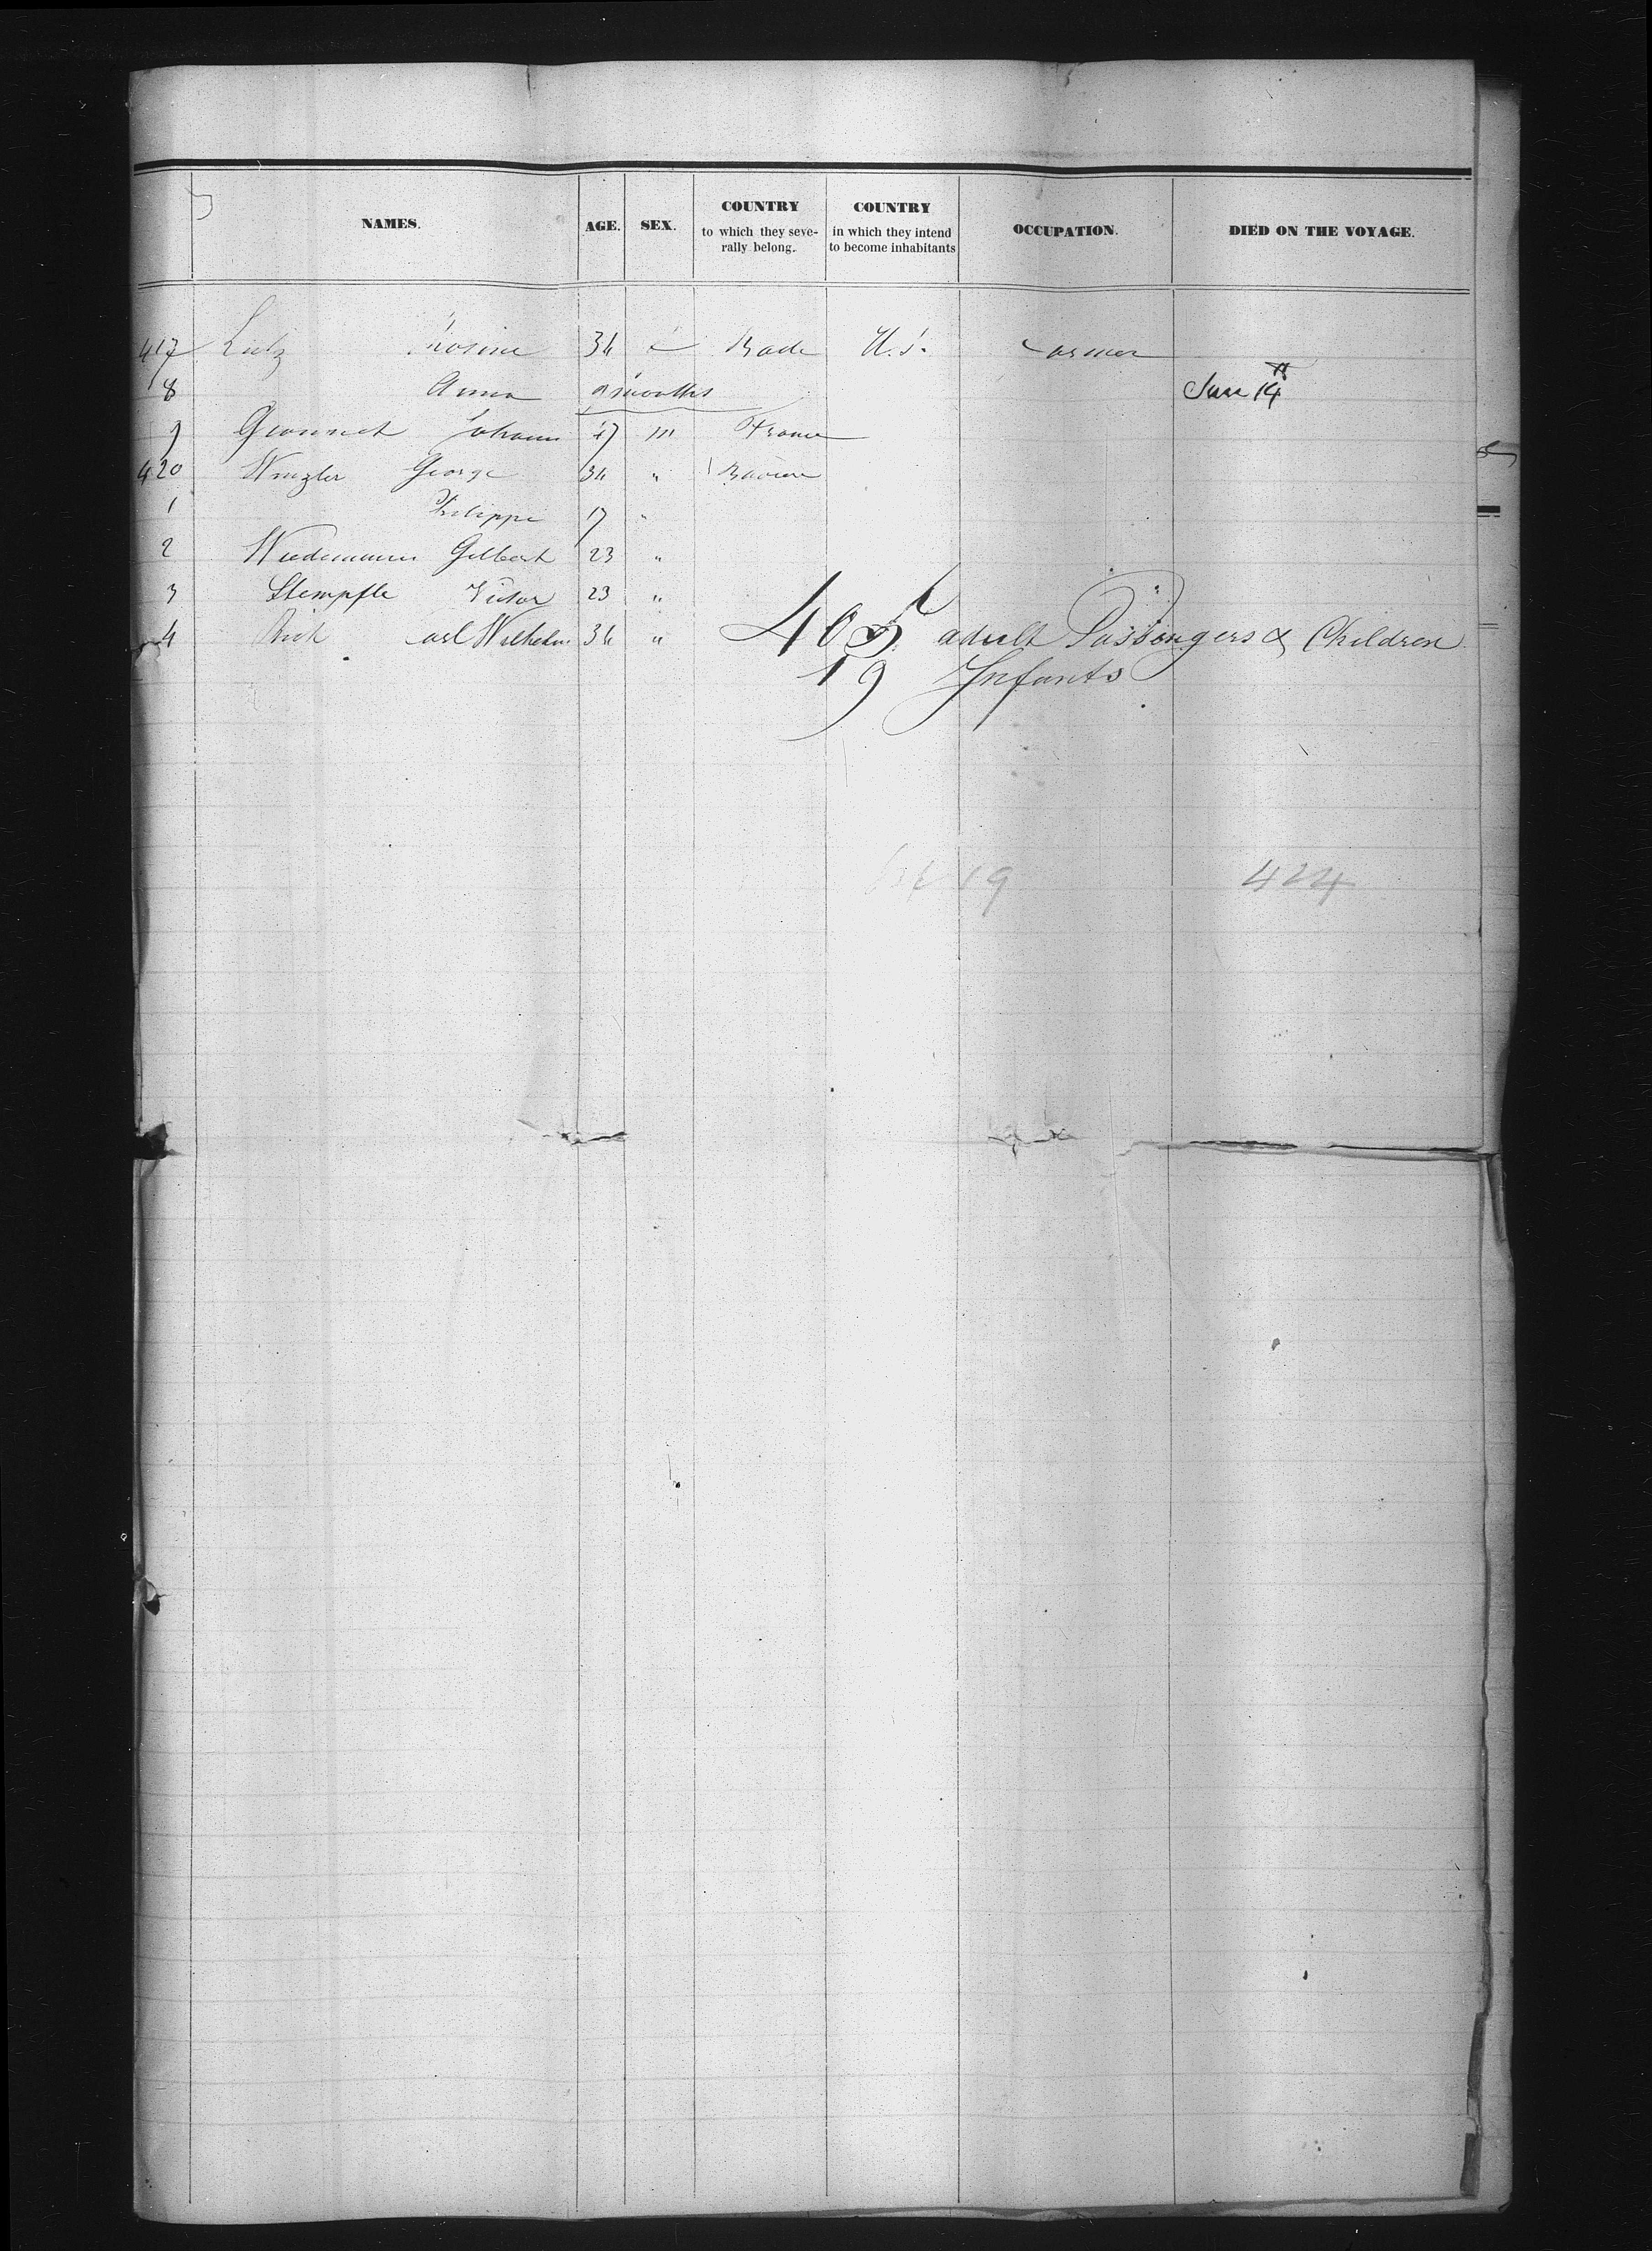 NAMES. AGE. SEX. COUNTRY to which they seve- rally belong. COUNTRY in which they intend to become inhabitants OCCUPATION. DIED ON THE VOYAGE.
417 Lutz Rosine 34 Bade U.S. Farmer
8 Anna 9 months June 14
9 Johann 47 m France
420 Winzler George 34 " Baviere
1 Philippe 17 "
2 Wiedemann Gilbert 23 "
3 Stempfle Victor 23 "
4 Carl Wilhelm 34 "
405 adult Passengers & Children
19 Infants
19 424